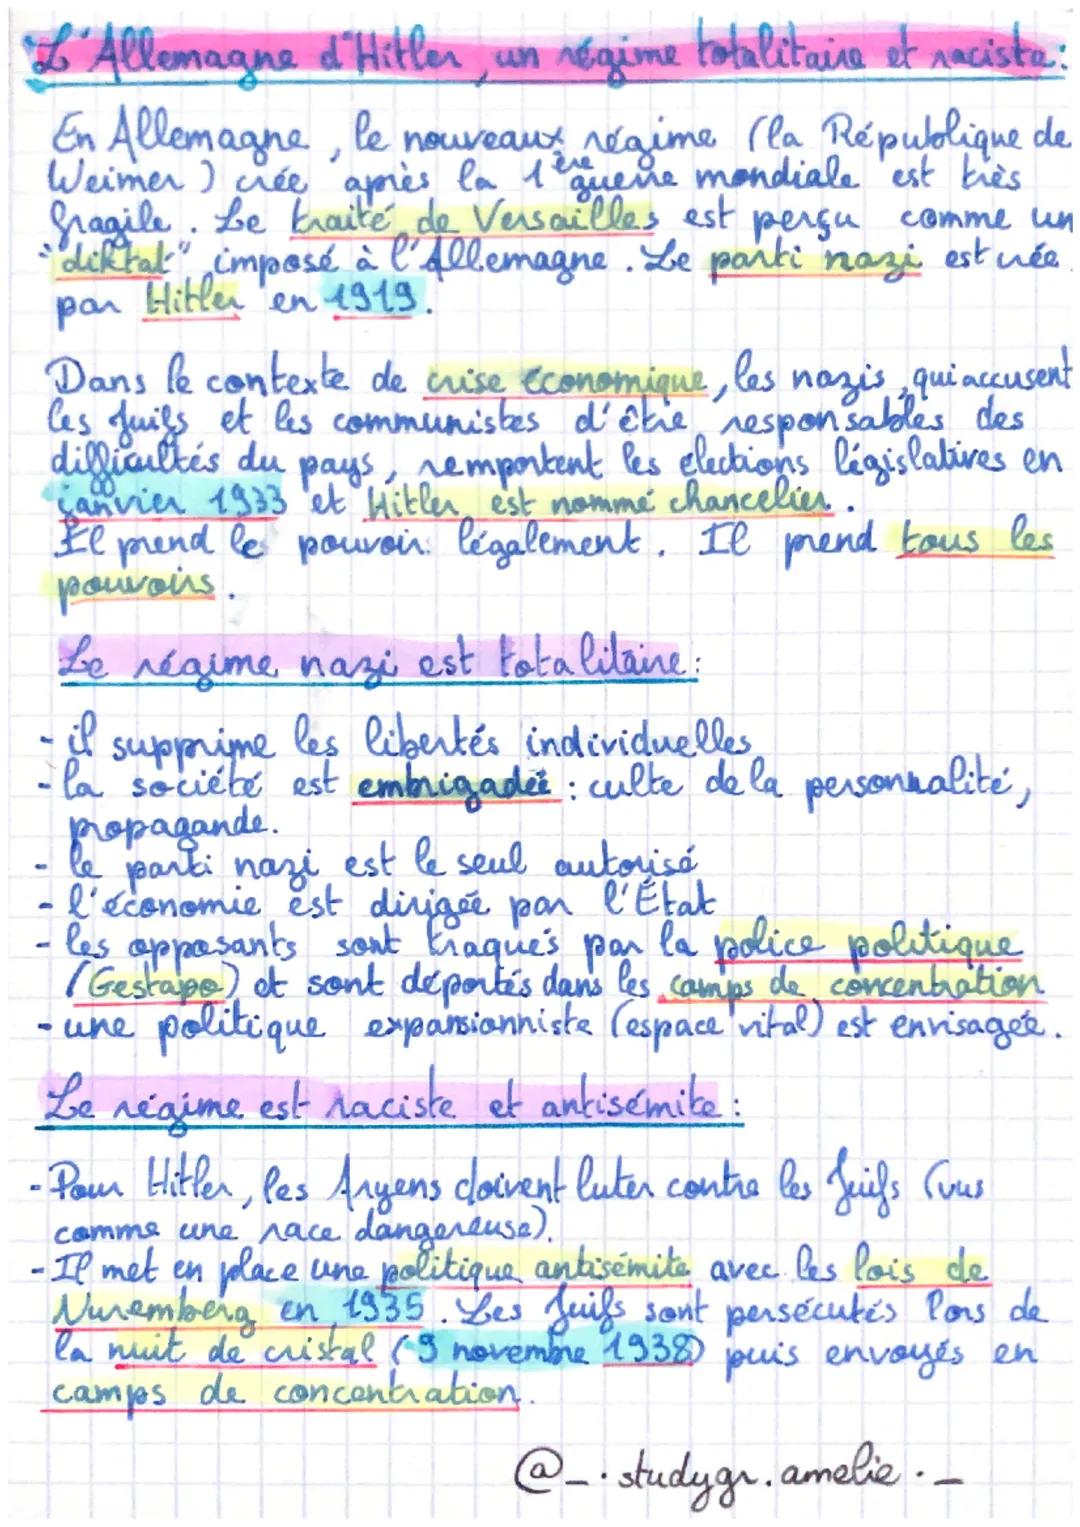 L'Allemagne d'Hitler, un régime totalitaire et raciste :
En Allemagne, le nouveaux régime (la République de
Weimer) crée après la 1ère guerre mondiale est très
fragile. Le traité de Versailles est perçu comme un
"diktat" imposé à l'Allemagne. Le parti nazi est crée
par Hitler en 1919.
Dans le contexte de crise économique, les nazis, qui accusent
les Juifs et les communistes d'être responsables des
difficultés du pays, remportent les élections législatives en
janvier 1933 et Hitler est nommé chancelier.
Il prend le pouvoir légalement. Il prend tous les
pouvoirs.
Le régime nazi est totalitaire :
- il supprime les libertés individuelles
- la société est embrigadée : culte de la personnalité,
propagande.
- le parti nazi est le seul autorisé
- l'économie est dirigée par l'État
- les opposants sont traqués par la police politique
(Gestapo) et sont déportés dans les camps de concentration
- une politique expansionniste (espace vital) est envisagée.
Le régime est raciste et antisémite :
- Pour Hitler, les Aryens doivent luter contre les Juifs (vus
comme une race dangereuse).
- Il met en place une politique antisémite avec les lois de
Nuremberg en 1935. Les Juifs sont persécutés lors de
la nuit de cristal (9 novembre 1938) puis envoyés en
camps de concentration.
@_.studygr.amelie._